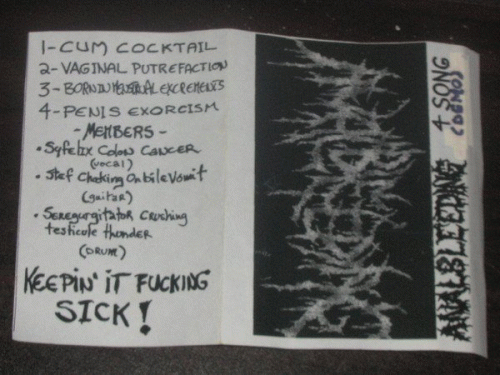 1-CUM COCKTAIL
2-VAGINAL PUTREFACTION
3-BORN IN MENSTRUAL EXCREMENTS
4-PENIS EXORCISM
-MEMBERS-
• Syfelix Colon Cancer
(vocal)
• Stef Choking On bile Vomit
(guitar)
• Seregurgitator Crushing
testicule thunder
(DRUM)
KEEPIN' IT FUCKING
SICK!
ANALBLEEDING 4 SONG
(DEMO)